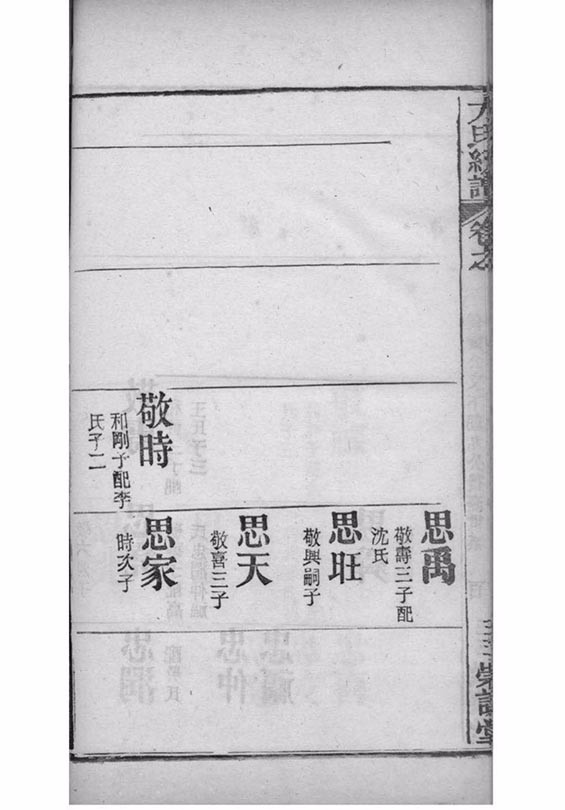 氏紀譜
卷之
思禹
敬壽三子配
沈氏
思旺
敬興嗣子
思天
敬喜三子
敬時
和剛子配李
氏子二
思家
時次子
崇
堂